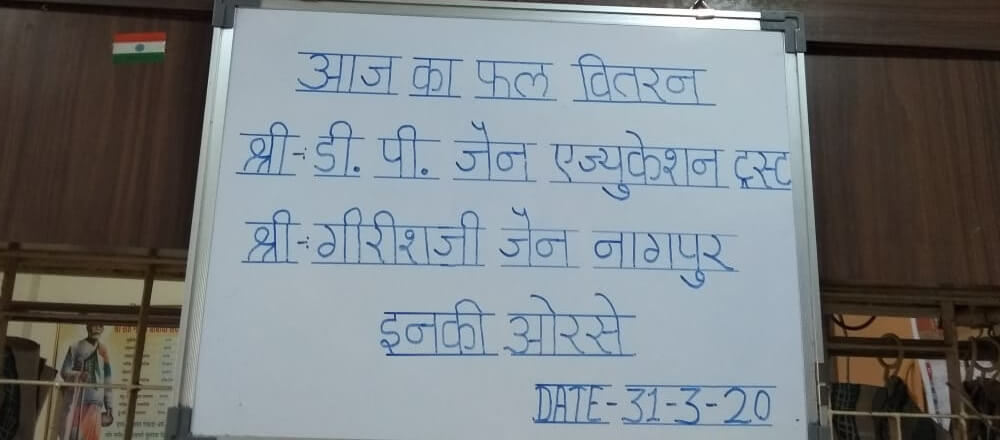 आज का फल वितरन
श्री-: डी. पी. जैन एज्युकेशन ट्रस्ट
श्री-: गीरीशजी जैन नागपुर
इनकी ओरसे
DATE-31-3-20